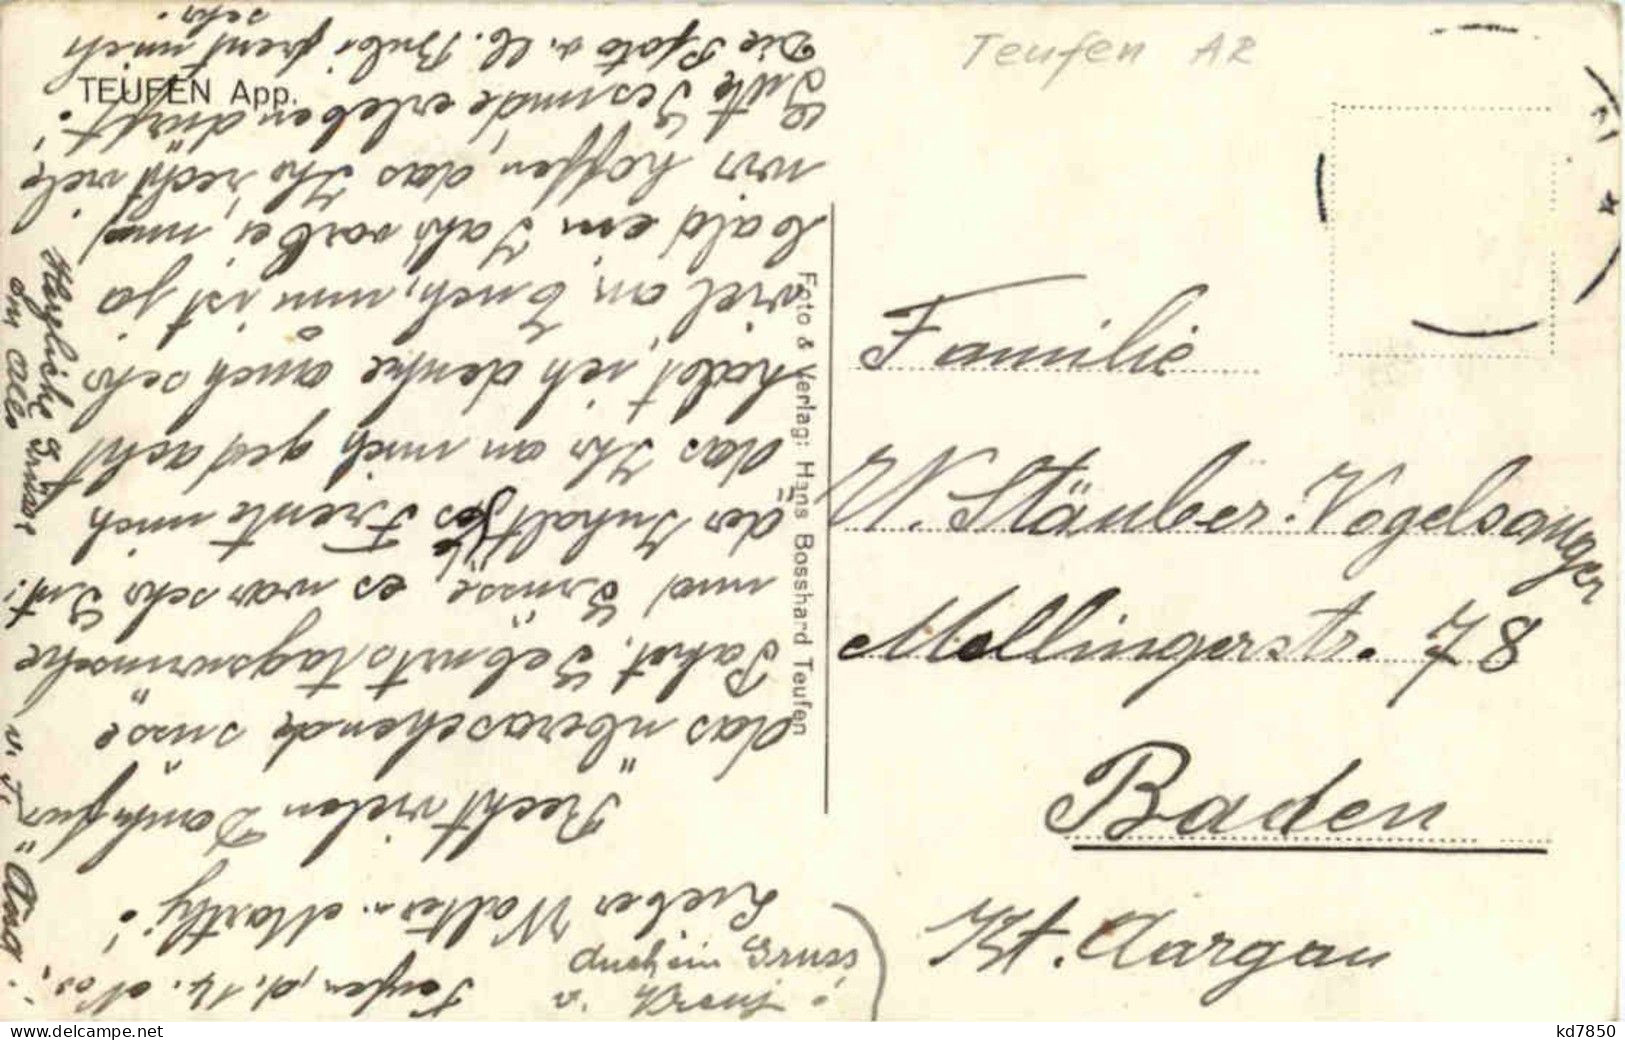 TEUFEN App.
Teufen AR
Foto & Verlag: Hans Bosshard Teufen
Familie
W. Stäuber-Vogelsanger
Mellingerstr. 78
Baden
Kt. Aargau
Teufen, d. 14. Nov.
Lieber Walter u. Marthy!
Recht vielen Dank für
das überaschende süsse
Paket, Geburtstagswünsche
und Grüsse, es war sehr Gut:
der Inhalt Freute mich
das Ihr an mich gedacht
habt, ich denke auch sehr
viel an Euch, nun ist ja
bald ein Jahr vorbei, und
wir hoffen, das Ihr recht viele
Gute Gesunde erleben dürft!
Die Photo v. lb. Bubi freut mich
sehr.
Herzliche Grüsse
an alle
auch ein Gruss